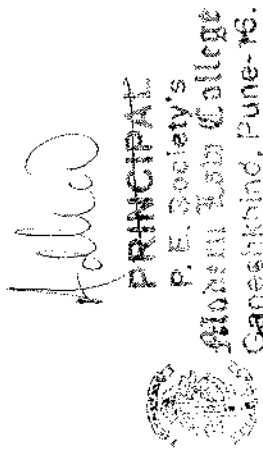 PRINCIPAL
P. E. Society's
Modern Law College
Ganeshkhind, Pune-16.